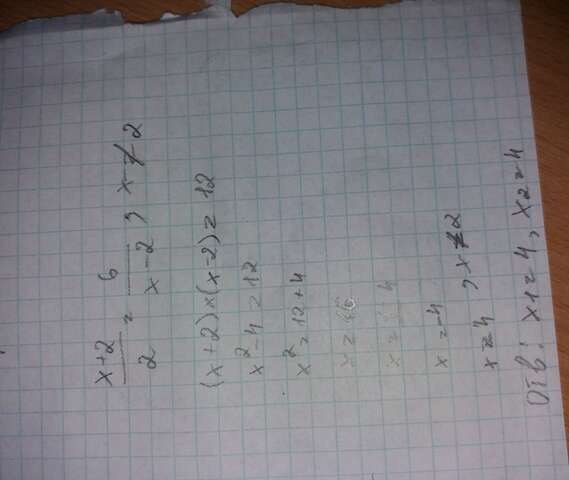 x+2/2 = 6/x-2 , x ≠ 2
(x+2)×(x-2)=12
x²-4=12
x²=12+4
x=-4
x=4 , x≠2
Отв: x1=4, x2=4